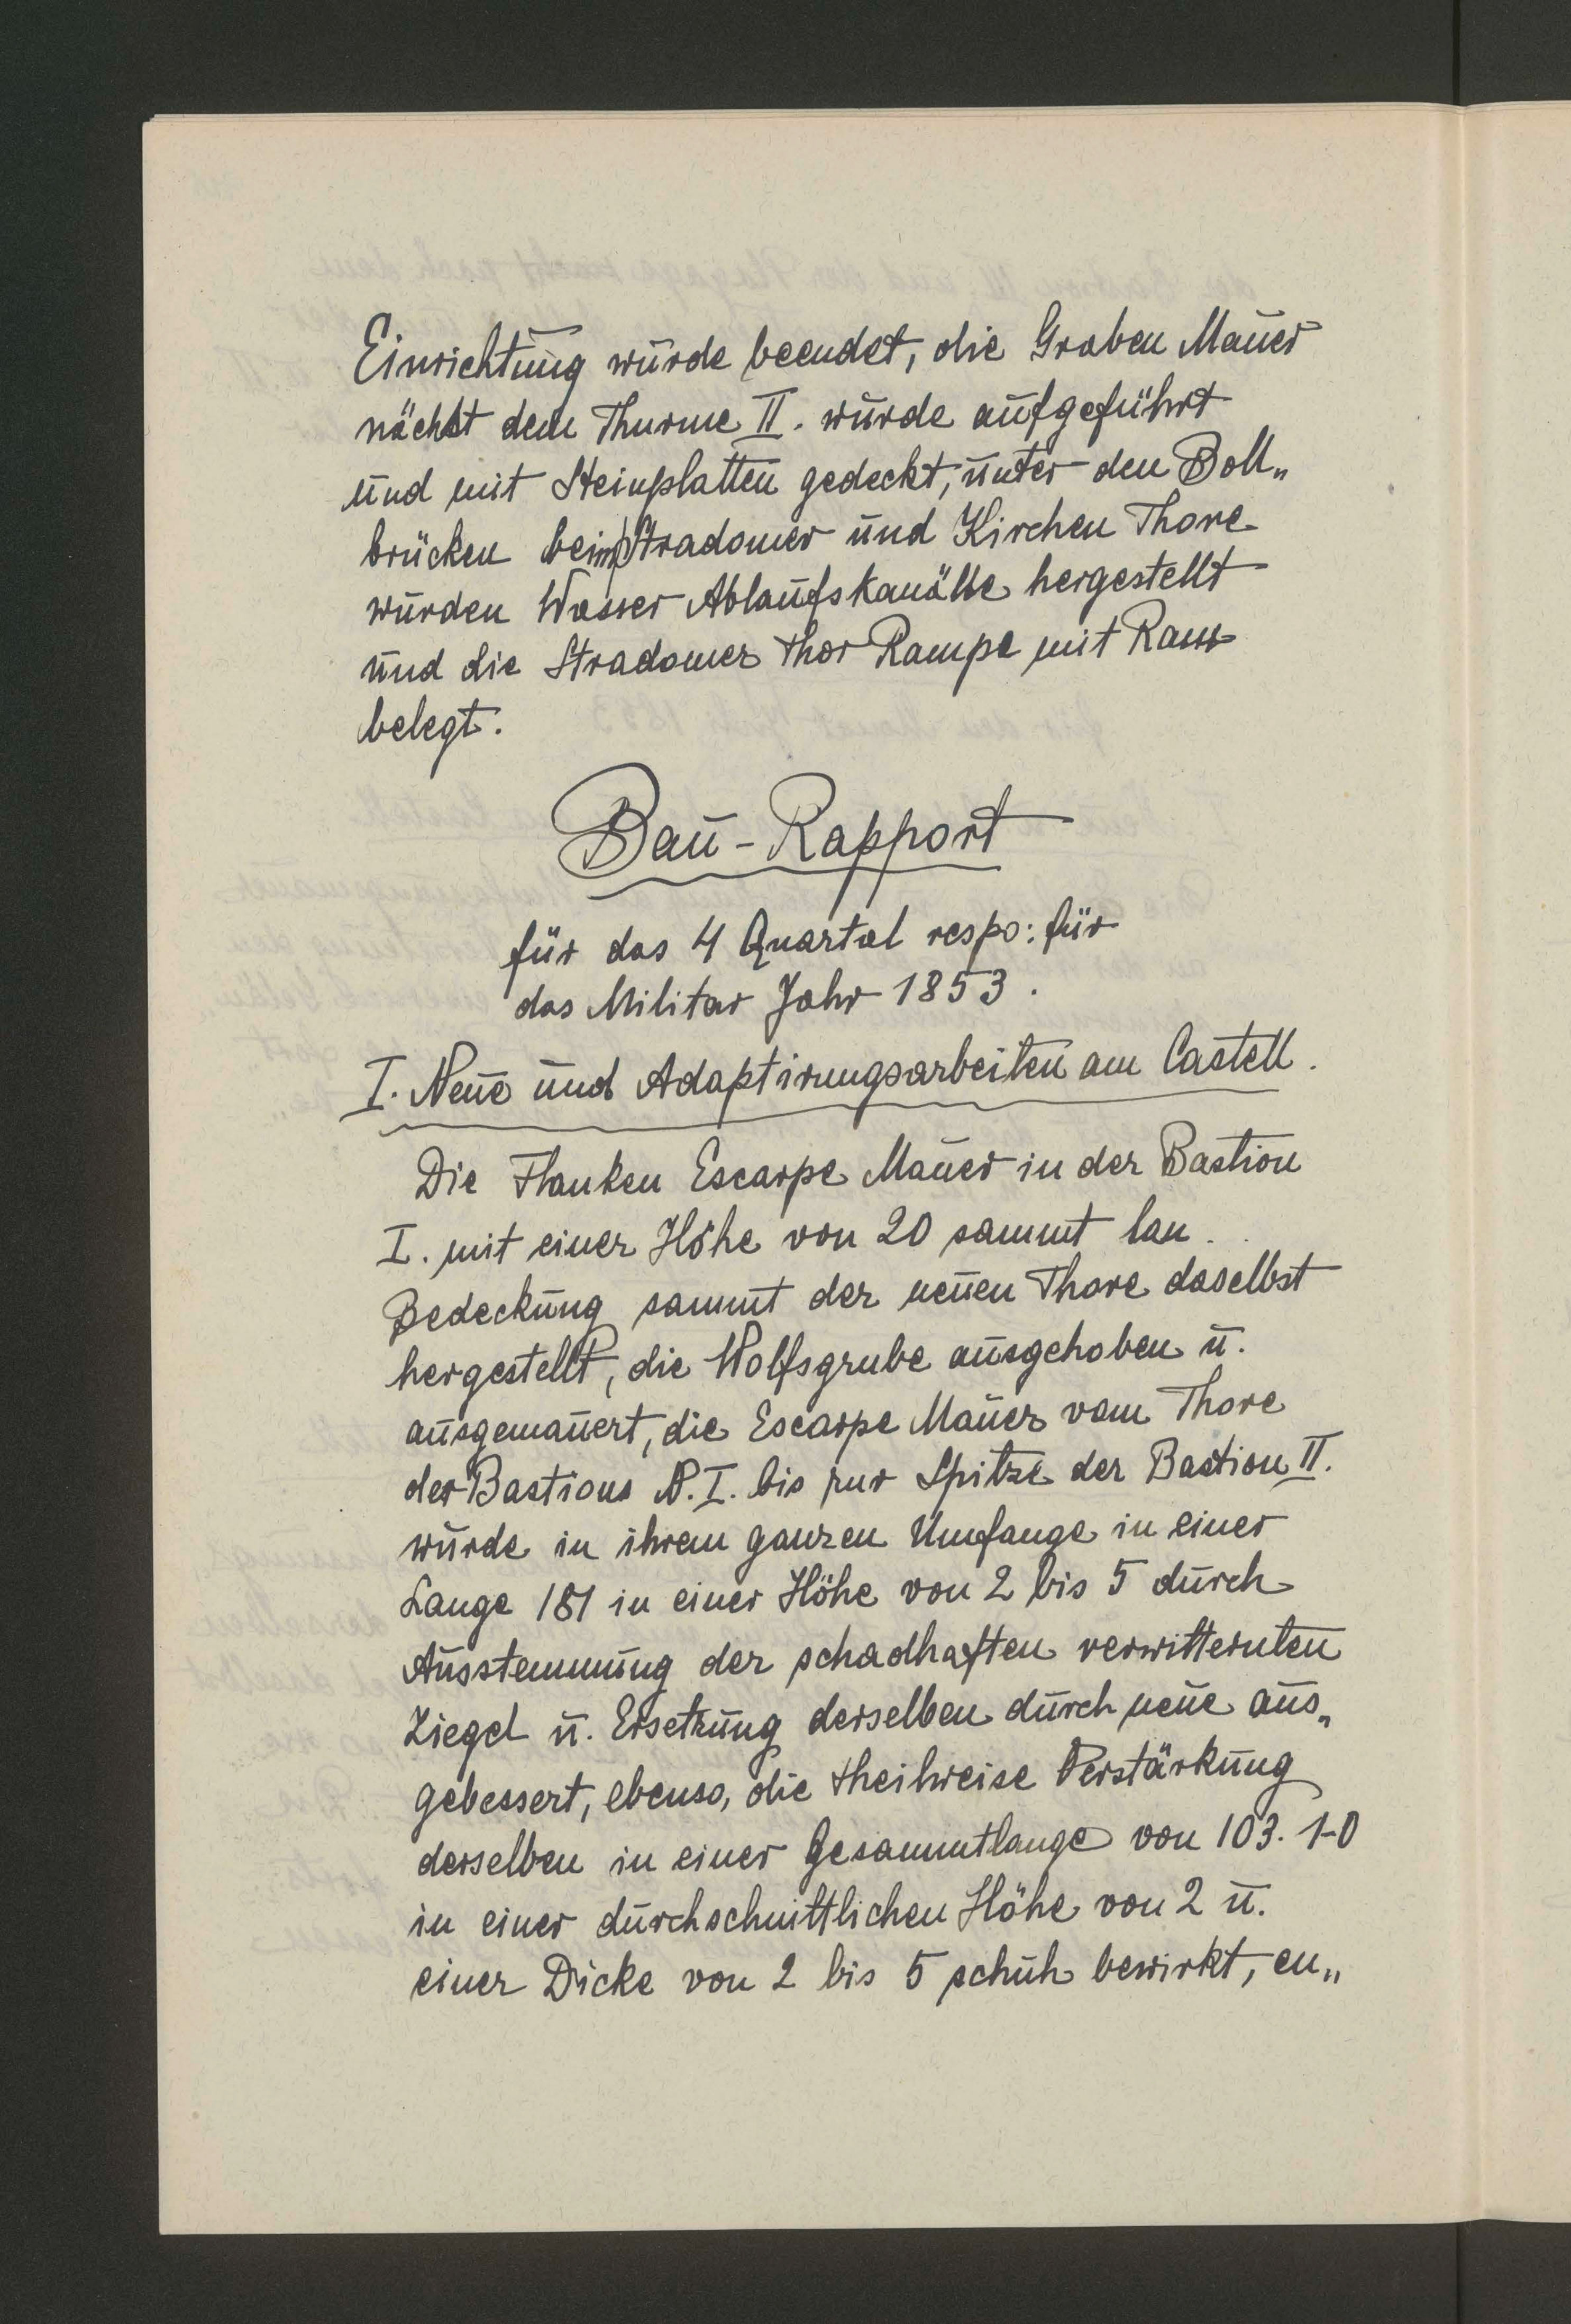 Einrichtung wurde beendet, die Graben Mauer
nächst dem Thurme II. wurde aufgeführt
und mit Steinplatten gedeckt, unter den Boll„
brücken beim Stradomer und Kirchen Thore
wurden Wasser Ablaufskanälle hergestellt
und die Stradomer Thor Rampe mit
belegt.
Bau-Rapport
für das 4 Quartal respo: für
das Militar Jahr 1853.
I. Neue und Adaptirungsarbeiten am Castell.
Die Flanken Escarpe Mauer in der Bastion
I. mit einer Höhe von 20 sammt lau..
Bedeckung sammt der neuen Thore daselbst
hergestellt, die Wolfsgrube ausgehoben u.
ausgemauert, die Escarpe Mauer vom Thore
der Bastions N. I. bis zur Spitze der Bastion II.
wurde in ihrem ganzen Umfange in einer
Lange 181 in einer Höhe von 2 bis 5 durch
Ausstemmung der schadhaften verwitternten
Ziegel u. Ersetzung derselben durch neue aus„
gebessert, ebenso, die theilweise Verstärkung
derselben in einer Gesammtlange von 103. 1-0
in einer durchschnittlichen Höhe von 2 u.
einer Dicke von 2 bis 5 schuh bewirkt, en„